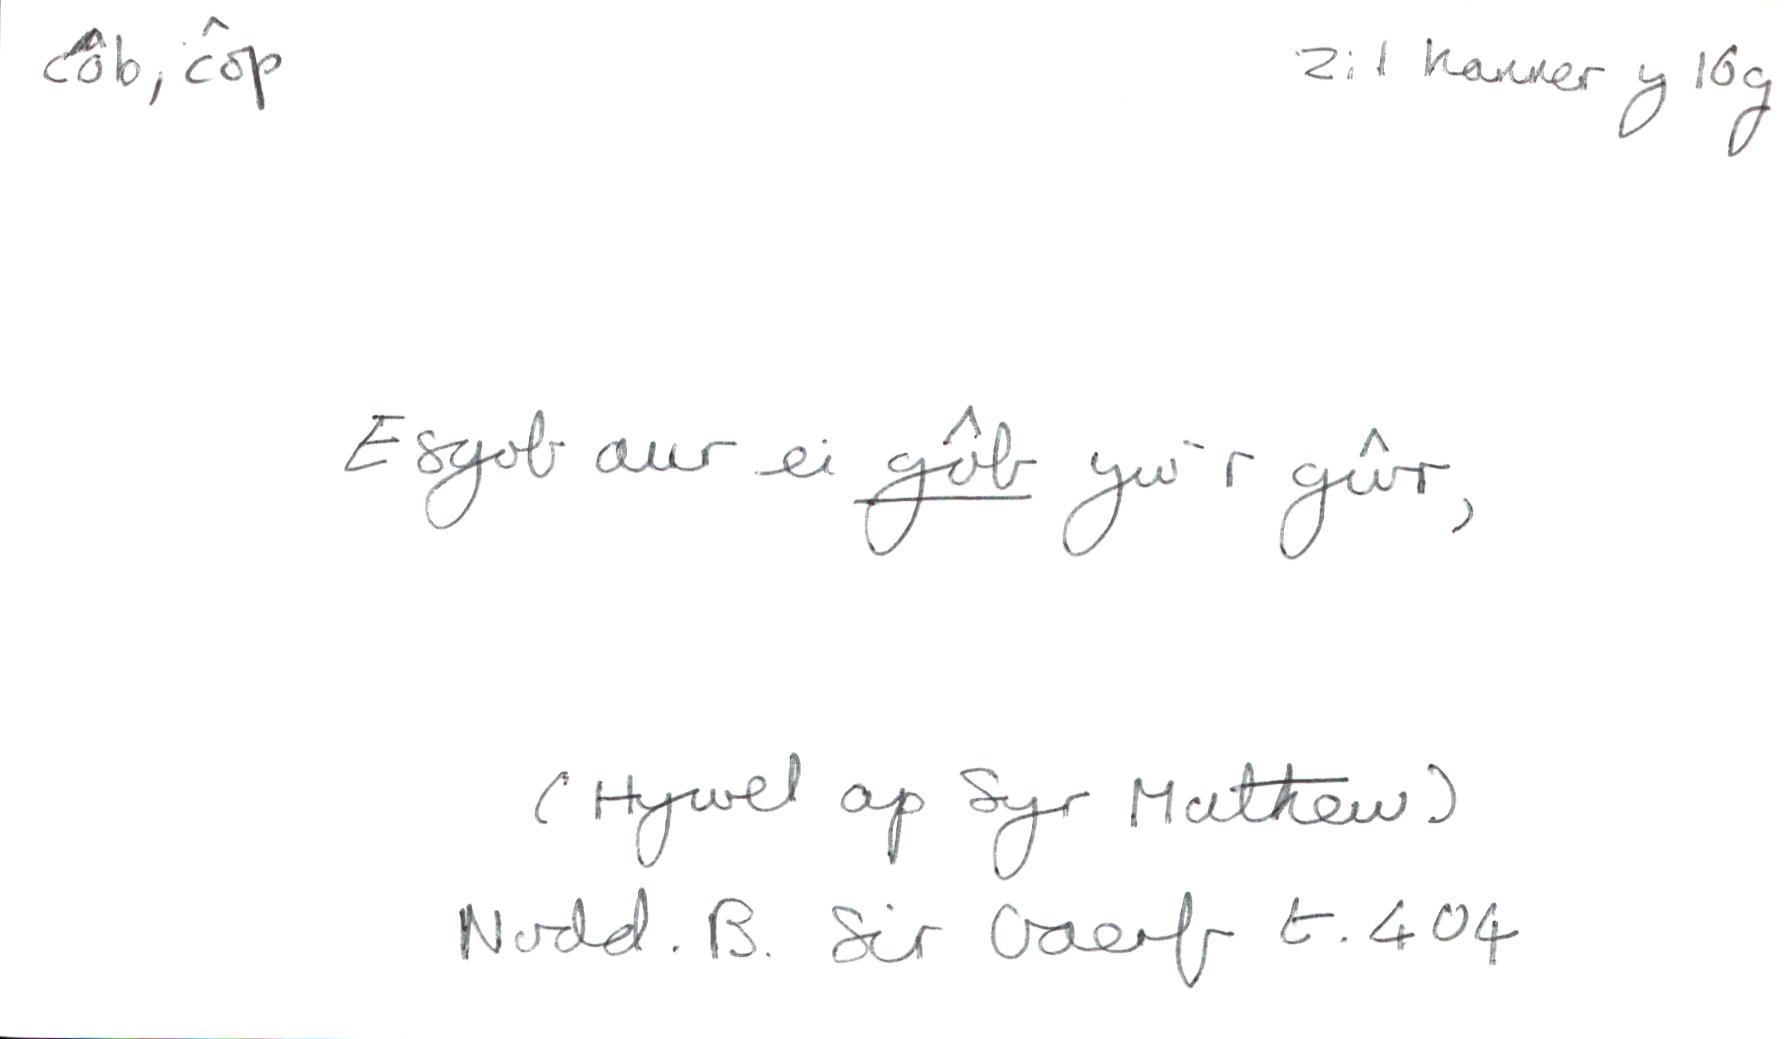 côb, côp
2il hanner y 16g
Esgob aur ei gôb yw'r gŵr,
(Hywel ap Syr Mathew)
Nodd. B. Sir Gaerf t. 404